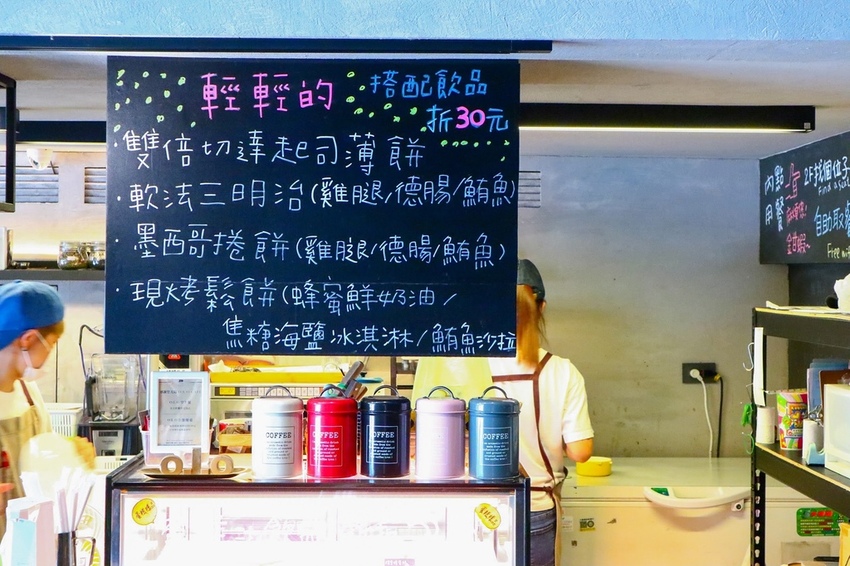 輕輕的
搭配飲品
折30元
·雙倍切達起司薄餅
·軟法三明治(雞腿/德腸/鮪魚)
·墨西哥捲餅(雞腿/德腸/鮪魚)
·現烤鬆餅(蜂蜜鮮奶油/
焦糖海鹽冰淇淋/鮪魚沙拉
內點
用餐
2F找個位子
Find a sea
自助取餐
COFFEE
COFFEE
COFFEE
COFFEE
COFFEE